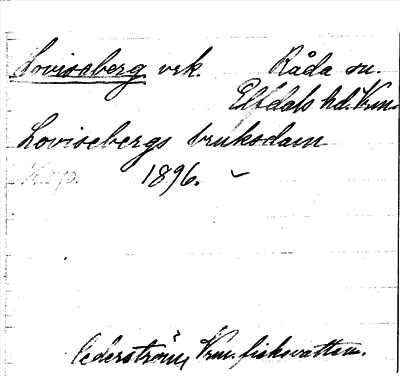 Loviseberg vrk. Råda sn.
Elfdals hd. Vrm.
Lovisebergs bruksdam
1896.
Cederström, Vrm. fiskevatten.